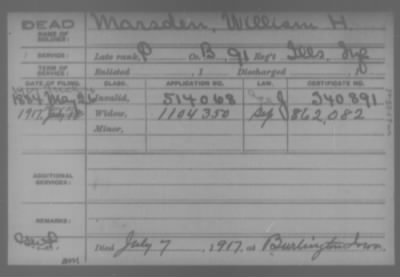 DEAD
NAME OF SOLDIER: Marsden, William H.
SERVICE: Late rank, P Co. B, 91 Reg't Ills. Inf
TERM OF SERVICE: Enlisted , 1 Discharged , 1
DATE OF FILING. CLASS. APPLICATION NO. CERTIFICATE NO.
1884 May 26 Invalid, 514068 340.891
1917. July Widow, 1104350 862,082
Minor,
ADDITIONAL SERVICES:
REMARKS:
Died July 7, 1917, at Burlington Iowa